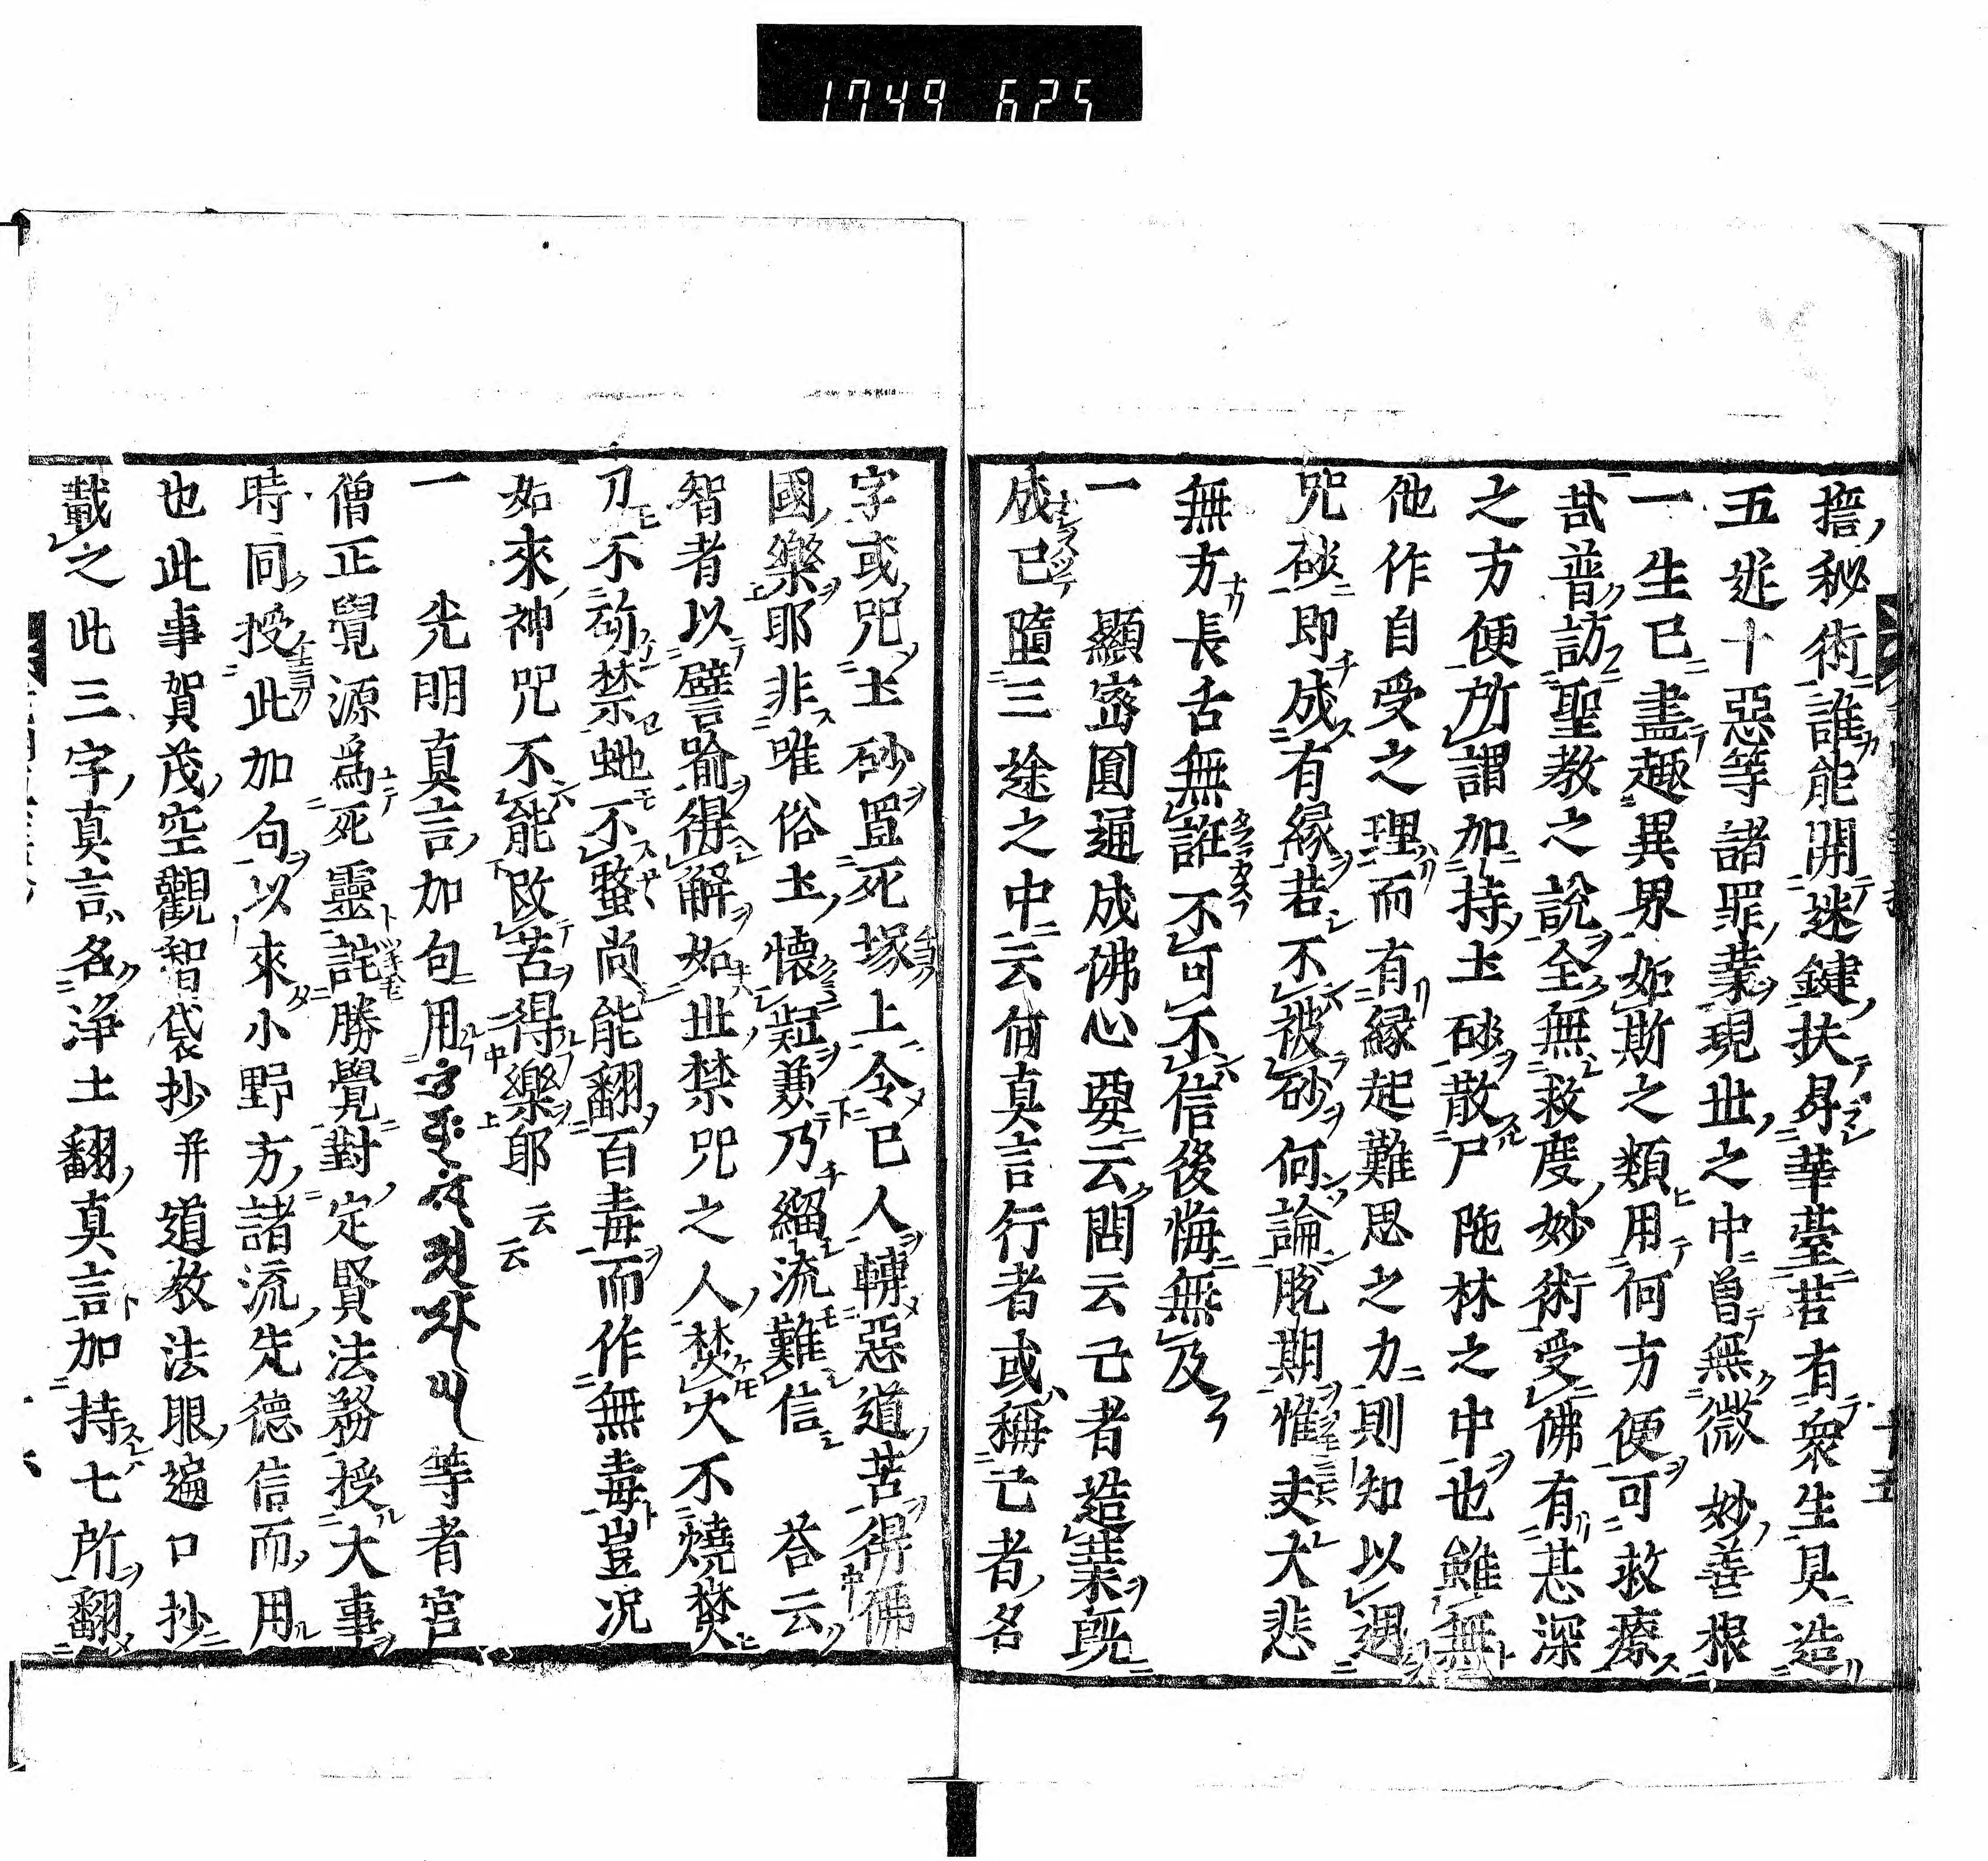 1749 625
十五
捂秘術誰能開迷鍵扶昇華臺若有衆生具造
五逆十惡等諸罪業現世之中曽無微妙善根
一生已盡趣異界如斯之類用何方便可救療
哉普訪聖教之說全無救度妙術受佛有甚深
之方便所謂加持土砂散尸陁林之中也雖無
他作自受之理而有縁起難思之力則知以遇
咒砂即成有縁若不被砂何論脫期惟夫大悲
無方長舌無誑不可不信後悔無及
一　顯密圓通成佛心要云問云己者造業既
成已墮三途之中云何真言行者或稱亡者名
字或咒土砂置死塚上令已人轉惡道苦得佛
國樂耶非唯俗士懐疑兼乃緇流難信　荅云
智者以譬喻得解如世禁咒之人焚火不燒焚
刀不斫禁虵不螫尚能翻百毒而作無毒豈况
如來神咒不能改苦得樂耶云云
一　光明真言加句用
等者宮
僧正覺源爲死靈詫勝覺對定賢法務授大事
時同授此加句以來小野方諸流先德信而用
也此事賀茂空觀智袋抄并道教法眼遍口抄
載之此三字真言名浄土翻真言加持七所翻